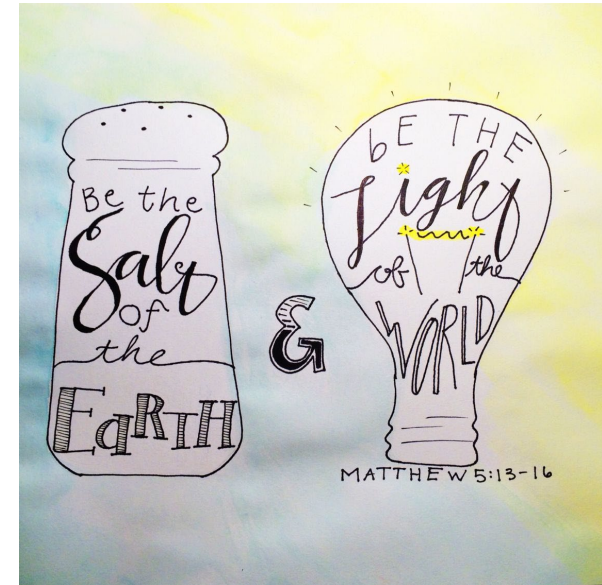 Be the
Salt
of
the
EaRTH
&
bE THE
Light
of the
WORLD
MATTHEW 5:13-16